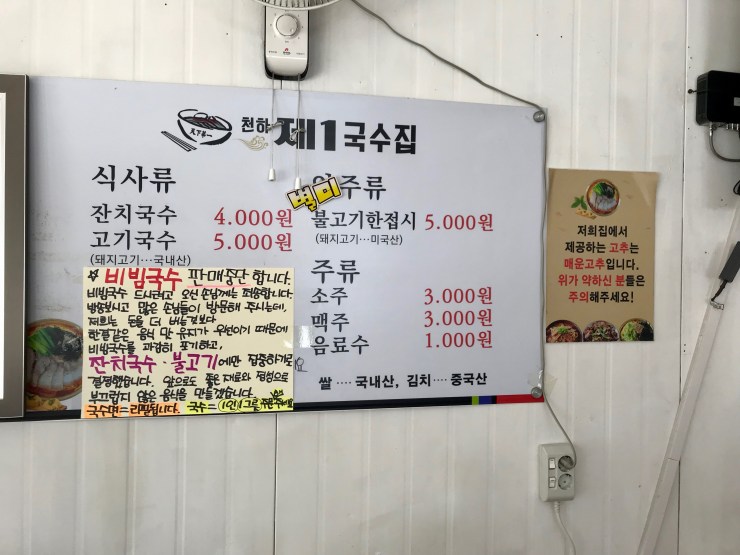 천하 제1국수집
식사류
잔치국수 4.000원
고기국수 5.000원
(돼지고기…국내산)
별미
주류
불고기한접시 5.000원
(돼지고기…미국산)
주류
소주 3.000원
맥주 3.000원
음료수 1.000원
쌀 …. 국내산, 김치 …. 중국산
☆ 비빔국수 판매중단 합니다.
비빔국수 드시려고 오신 손님께는 죄송합니다.
방송보시고 많은 손님들이 방문해 주시는데,
저희는 돈을 더 버는것보다
한결같은 음식 맛 유지가 우선이기 때문에
비빔국수를 과감히 포기하고,
잔치국수·불고기에만 집중하기로
결정했습니다. 앞으로도 좋은 재료와 정성으로
부끄럽지 않은 음식을 만들겠습니다.
국수면=리필됩니다. 국수= (1인)1그릇 주문
저희집에서
제공하는 고추는
매운고추입니다.
위가 약하신 분들은
주의해주세요!